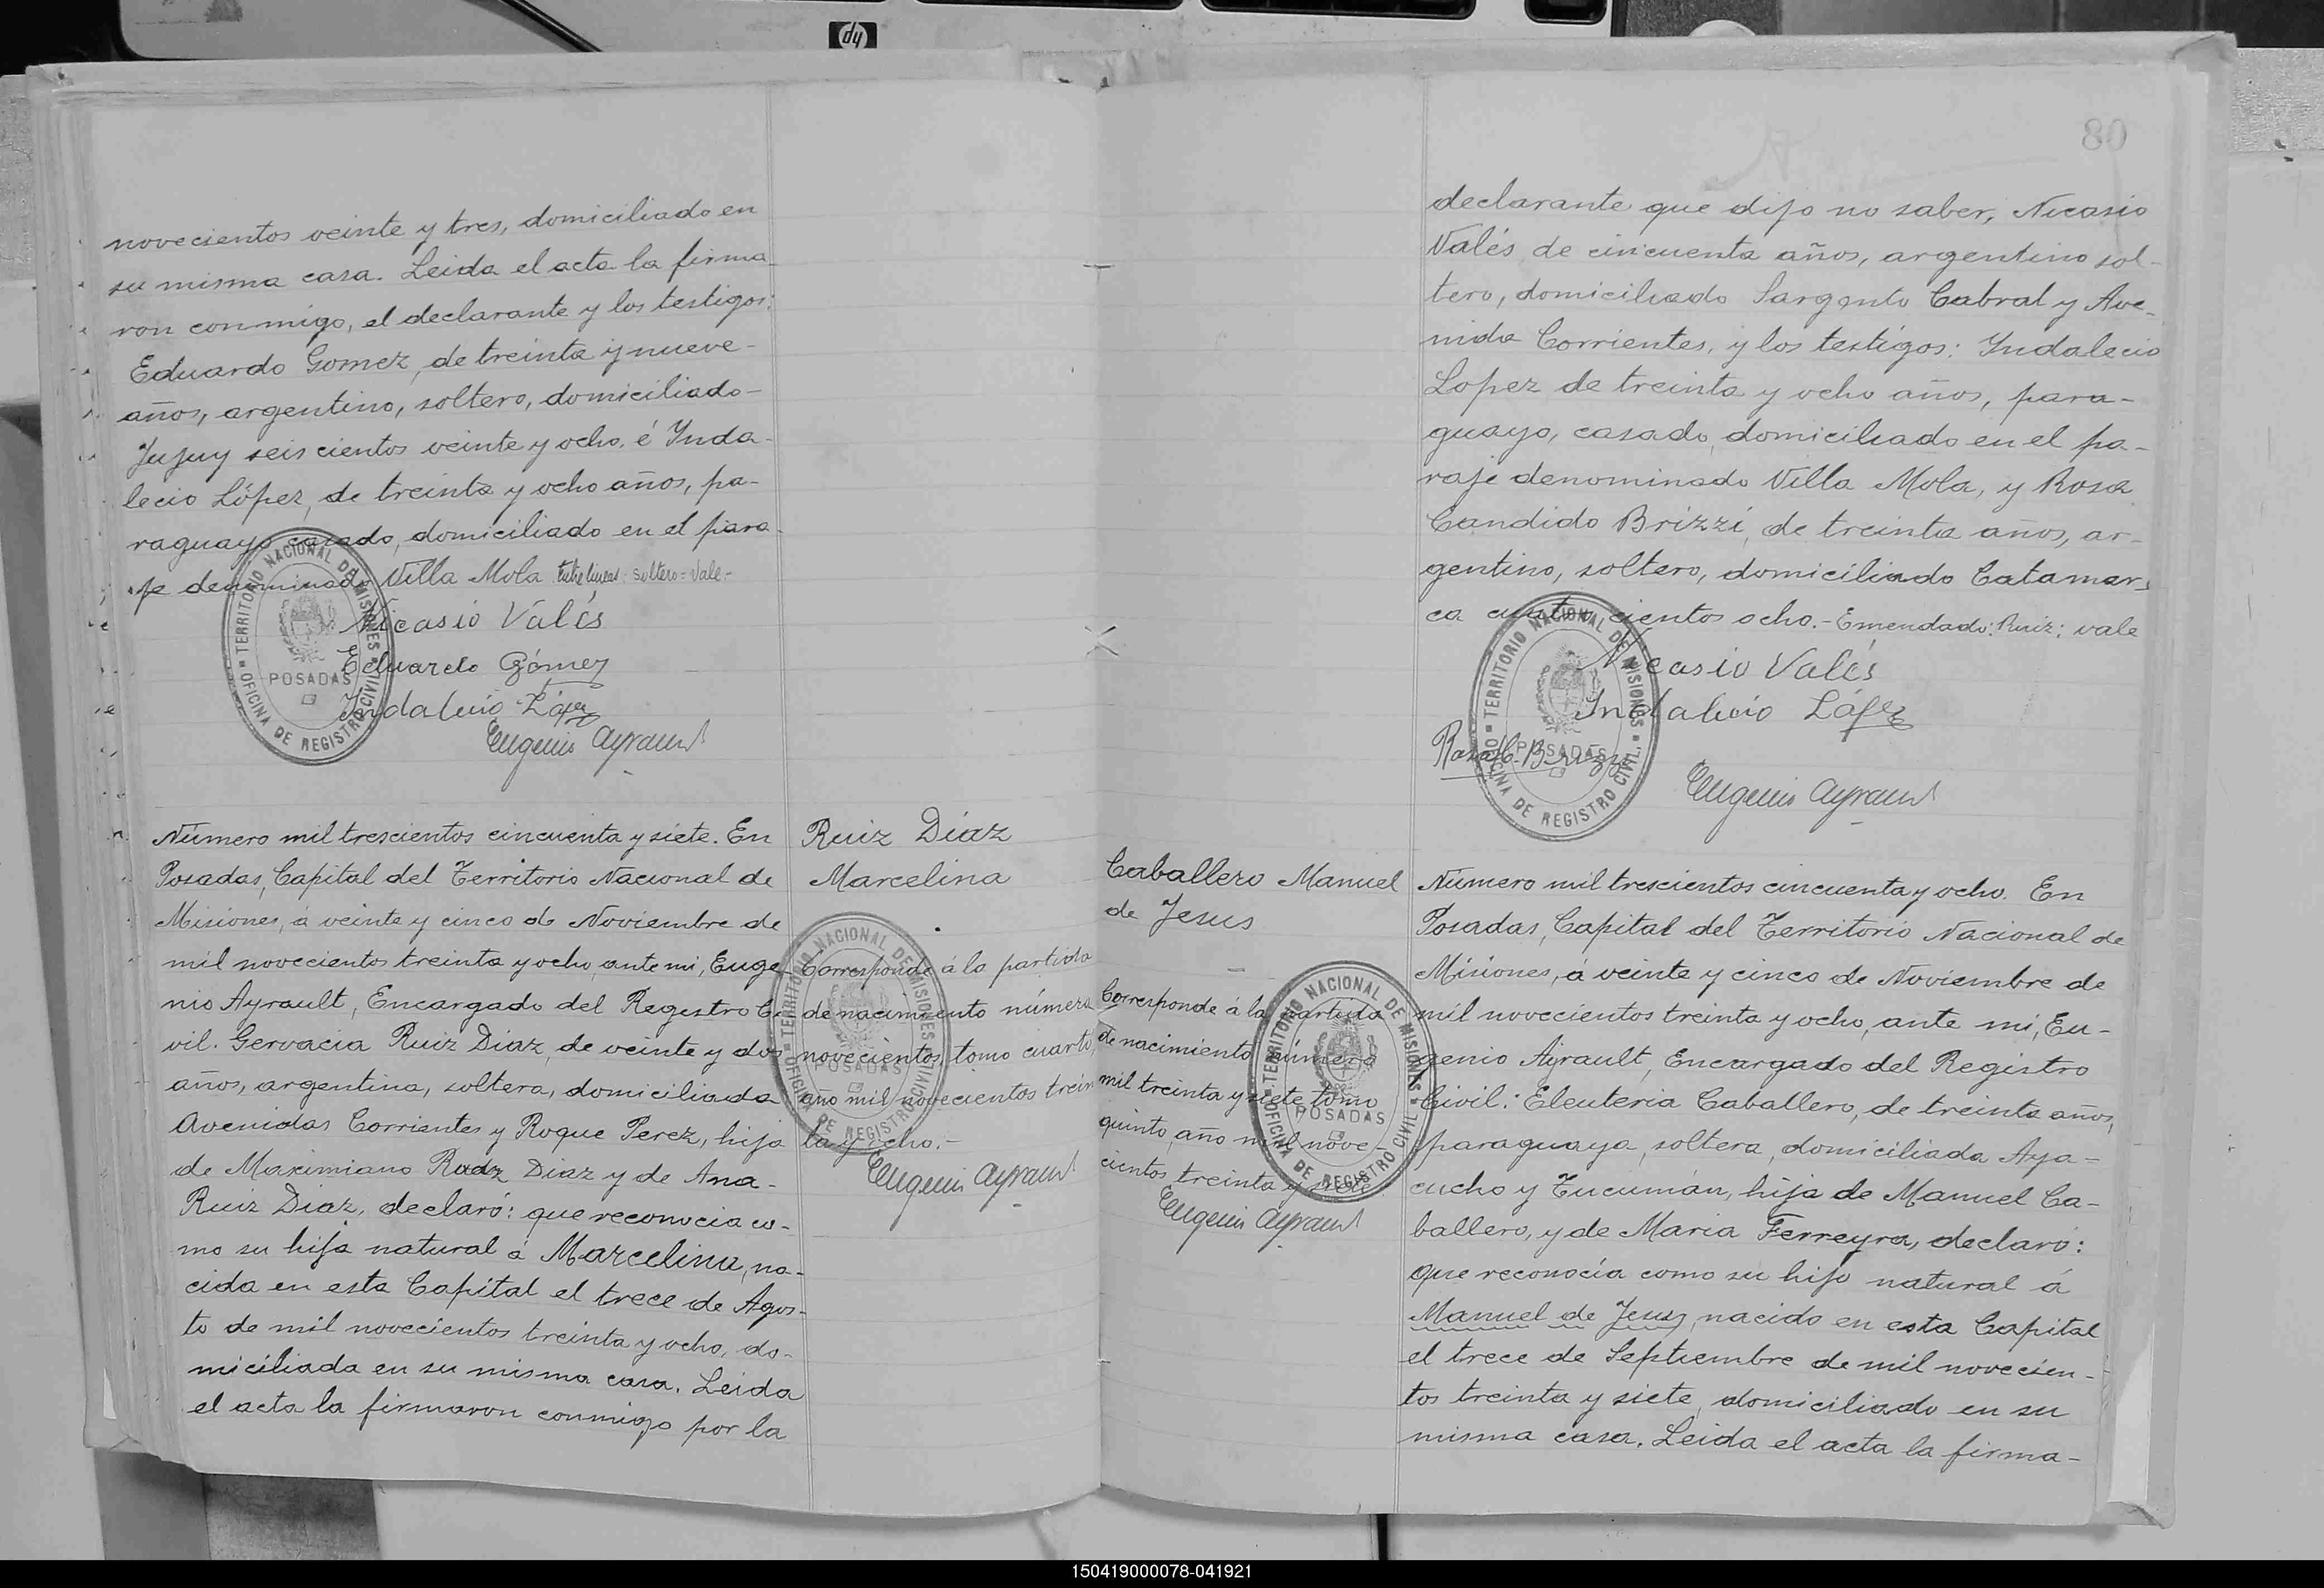 novecientos veinte y tres, domiciliado en
su misma casa. Leida el acta la firma-
ron conmigo, el declarante y los testigos:
Eduardo Gomez, de treinta y nueve-
años, argentino, soltero, domiciliado-
Jujuy seis cientos veinte y ocho, é Inda-
lecio López, de treinta y ocho años, pa-
raguayo casado, domiciliado en el para-
je denominado Villa Mola. Entre lineas: soltero=Vale.-
Nicasio Valés
Eduardo Gómez
Indalecio López
Eugenio Ayrault
TERRITORIO NACIONAL DE MISIONES
POSADAS
OFICINA DE REGISTRO CIVIL
Número mil trescientos cincuenta y siete. En
Posadas, Capital del Territorio Nacional de
Misiones, á veinte y cinco de Noviembre de
mil novecientos treinta y ocho, ante mi, Euge-
nio Ayrault, Encargado del Registro Ci-
vil. Gervacia Ruiz Diaz, de veinte y dos
años, argentina, soltera, domiciliada
Avenidas Corrientes y Roque Perez, hija
de Maximiano Ruiz Diaz y de Ana-
Ruiz Diaz, declaró: que reconocia co-
mo su hija natural á Marcelina, na-
cida en esta Capital el trece de Agos-
to de mil novecientos treinta y ocho, do-
miciliada en su misma casa. Leida
el acta la firmaron conmigo por la
Ruiz Díaz
Marcelina
Corresponde á la partida
de nacimiento número
novecientos, tomo cuarto,
año mil novecientos trein
ta y ocho.-
Eugenio Ayrault
TERRITORIO NACIONAL DE MISIONES
POSADAS
OFICINA DE REGISTRO CIVIL
80
declarante que dijo no saber, Nicasio
Valés de cincuenta años, argentino sol-
tero, domiciliado Sargento Cabral y Ave-
nida Corrientes, y los testigos: Indalecio
Lopez de treinta y ocho años, para-
guayo, casado, domiciliado en el pa-
raje denominado Villa Mola, y Rosa
Candido Brizzi, de treinta años, ar-
gentino, soltero, domiciliado Catamar-
ca cuatrocientos ocho.- Emendado: Ruiz: vale
Nicasio Valés
Indalecio López
Rosa C. Brizzi
Eugenio Ayrault
TERRITORIO NACIONAL DE MISIONES
POSADAS
OFICINA DE REGISTRO CIVIL
Caballero Manuel
de Jesus
Corresponde á la partida
de nacimiento número
mil treinta y siete tomo
quinto, año mil nove-
cientos treinta y siete
Eugenio Ayrault
TERRITORIO NACIONAL DE MISIONES
POSADAS
OFICINA DE REGISTRO CIVIL
Número mil trescientos cincuenta y ocho. En
Posadas, Capital del Territorio Nacional de
Misiones, á veinte y cinco de Noviembre de
mil novecientos treinta y ocho, ante mi, Eu-
genio Ayrault, Encargado del Registro
Civil: Eleuteria Caballero, de treinta años,
paraguaya, soltera, domiciliada Aya-
cucho y Tucumán, hija de Manuel Ca-
ballero, y de Maria Ferreyra, declaró:
que reconocía como su hijo natural á
Manuel de Jesus, nacido en esta Capital
el trece de Septiembre de mil novecien-
tos treinta y siete, domiciliado en su
misma casa. Leida el acta la firma-
150419000078-041921